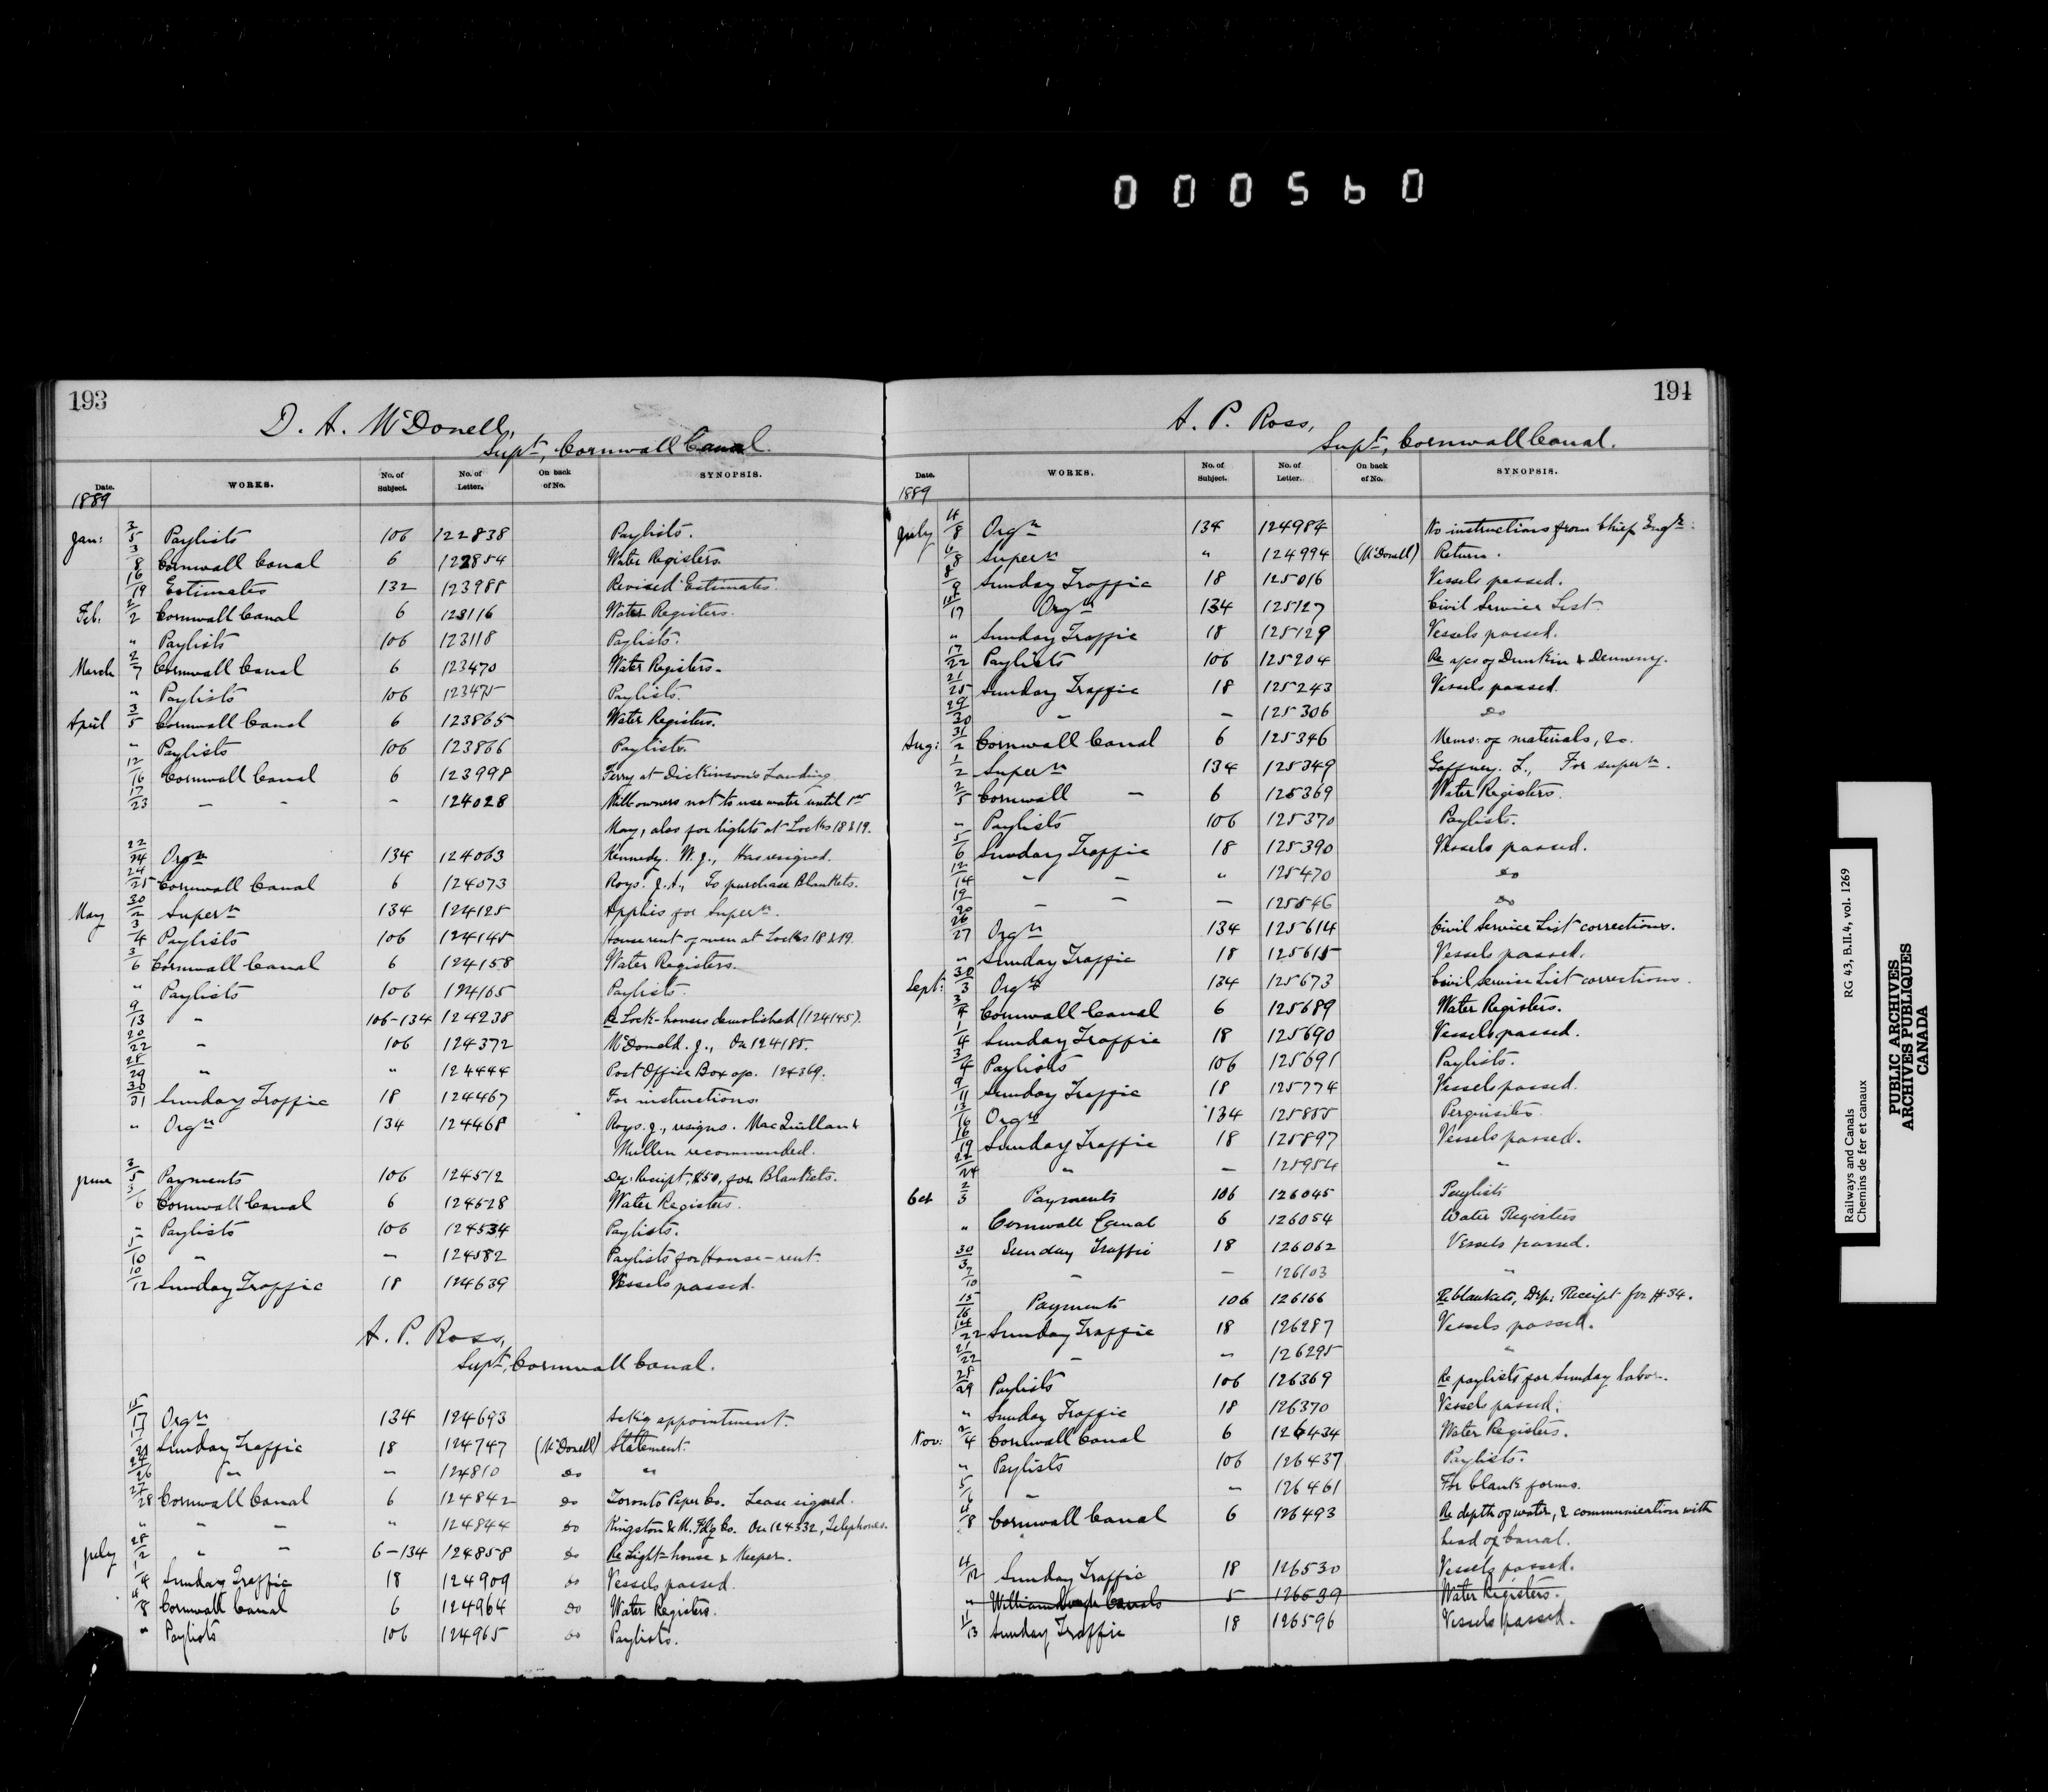 000560
193
D. A. McDonell,
Supt, Cornwall Canal.
Date. WORKS. No. of Subject. No. of Letter. On back of No. SYNOPSIS.
1889
Jan: 3/5 Paylists 106 122838 Paylists.
3/8 Cornwall Canal 6 122854 Water Registers.
16/19 Estimates 132 123988 Revised Estimates.
Feb. 2/2 Cornwall Canal 6 123116 Water Registers.
" Paylists 106 123118 Paylists.
March 2/7 Cornwall Canal 6 123470 Water Registers.
" Paylists 106 123475 Paylists.
April 3/5 Cornwall Canal 6 123865 Water Registers.
" Paylists 106 123866 Paylists.
12/16 Cornwall Canal 6 123998 Ferry at Dickinson's Landing
17/23 " " " 124028 Mill owners not to use water until 1st
May, also for lights at Locks 18 & 19.
22/24 Orgn 134 124063 Kennedy. W. J., Has resigned.
24/25 Cornwall Canal 6 124073 Roys. J. A., To purchase Blankets.
May 30/2 Supern 134 124125 Applies for Supern.
3/4 Paylists 106 124145 House rent of men at Locks 18 & 19.
3/6 Cornwall Canal 6 124158 Water Registers.
" Paylists 106 124165 Paylists.
9/13 " 106-134 124238 Re Lock-houses demolished (124145).
20/22 " 106 124372 McDonald. J., On 124185.
28/29 " " 124444 Post Office Box a/c. 124369.
30/31 Sunday Traffic 18 124467 For instructions.
" Orgn 134 124468 Roys. J., resigns. MacQuillan &
Mullen recommended.
June 3/5 Payments 106 124512 Dep: Receipt, $50, for Blankets.
3/6 Cornwall Canal 6 124528 Water Registers.
" Paylists 106 124534 Paylists.
5/10 " " 124582 Paylists for House-rent.
10/12 Sunday Traffic 18 124639 Vessels passed.
A. P. Ross,
Supt, Cornwall Canal.
15/17 Orgn 134 124693 Ackg appointment.
Sunday Traffic 18 124747 (McDonell) Statement.
24/26 " " 124810 do "
27/28 Cornwall Canal 6 124842 do Toronto Paper Co. Lease signed.
" " " " 124844 do Kingston & M. Fdg Co. On 124332, Telephones.
July 28/2 " " 6-134 124858 do Re Light-house & Keeper.
1/4 Sunday Traffic 18 124909 do Vessels passed.
4/8 Cornwall Canal 6 124964 do Water Registers.
" Paylists 106 124965 do Paylists.
194
A. P. Ross,
Supt, Cornwall Canal.
Date. WORKS. No. of Subject. No. of Letter. On back of No. SYNOPSIS.
1889
July 4/8 Orgn 134 124984 No instructions from Chief Engr.
6/8 Supern " 124994 (McDonell) Return.
8/9 Sunday Traffic 18 125016 Vessels passed.
Orgn 134 125127 Civil Service List.
" Sunday Traffic 18 125129 Vessels passed.
17/22 Paylists 106 125204 Re a/cs of Dunkin & Denneny.
21/25 Sunday Traffic 18 125243 Vessels passed.
29/30 " " 125306 do
Aug: 31/2 Cornwall Canal 6 125346 Memo: of materials, &c.
1/2 Supern 134 125349 Gaffney. L., For supern.
2/5 Cornwall " 6 125369 Water Registers.
" Paylists 106 125370 Paylists.
5/6 Sunday Traffic 18 125390 Vessels passed.
12/14 " " " 125470 do
19/20 " " " 125546 do
26/27 Orgn 134 125614 Civil Service List corrections.
" Sunday Traffic 18 125615 Vessels passed.
Sept: 30/3 Orgn 134 125673 Civil Service List corrections.
3/4 Cornwall Canal 6 125689 Water Registers.
1/4 Sunday Traffic 18 125690 Vessels passed.
3/4 Paylists 106 125691 Paylists.
9/11 Sunday Traffic 18 125774 Vessels passed.
13/16 Orgn 134 125855 Perquisites.
16/19 Sunday Traffic 18 125897 Vessels passed.
22/24 " " 125954 "
Oct 2/3 Payments 106 126045 Paylists
" Cornwall Canal 6 126054 Water Registers
30/3 Sunday Traffic 18 126062 Vessels passed.
7/10 " " 126103 "
15/16 Payments 106 126166 Re blankets, Dep: Receipt for $34.
14/22 Sunday Traffic 18 126287 Vessels passed.
21/22 " " 126295 "
28/29 Paylists 106 126369 Re paylists for Sunday labor.
" Sunday Traffic 18 126370 Vessels passed.
Nov: 2/4 Cornwall Canal 6 126434 Water Registers.
" Paylists 106 126437 Paylists.
5/6 " " 126461 For blank forms.
4/8 Cornwall Canal 6 126493 Re depth of water, & communication with
head of Canal.
4/12 Sunday Traffic 18 126530 Vessels passed.
" Williamsburgh Canals 5 126539 Water Registers.
11/13 Sunday Traffic 18 126596 Vessels passed.
Railways and Canals RG 43, B.II.4, vol. 1269
Chemins de fer et canaux
PUBLIC ARCHIVES
ARCHIVES PUBLIQUES
CANADA